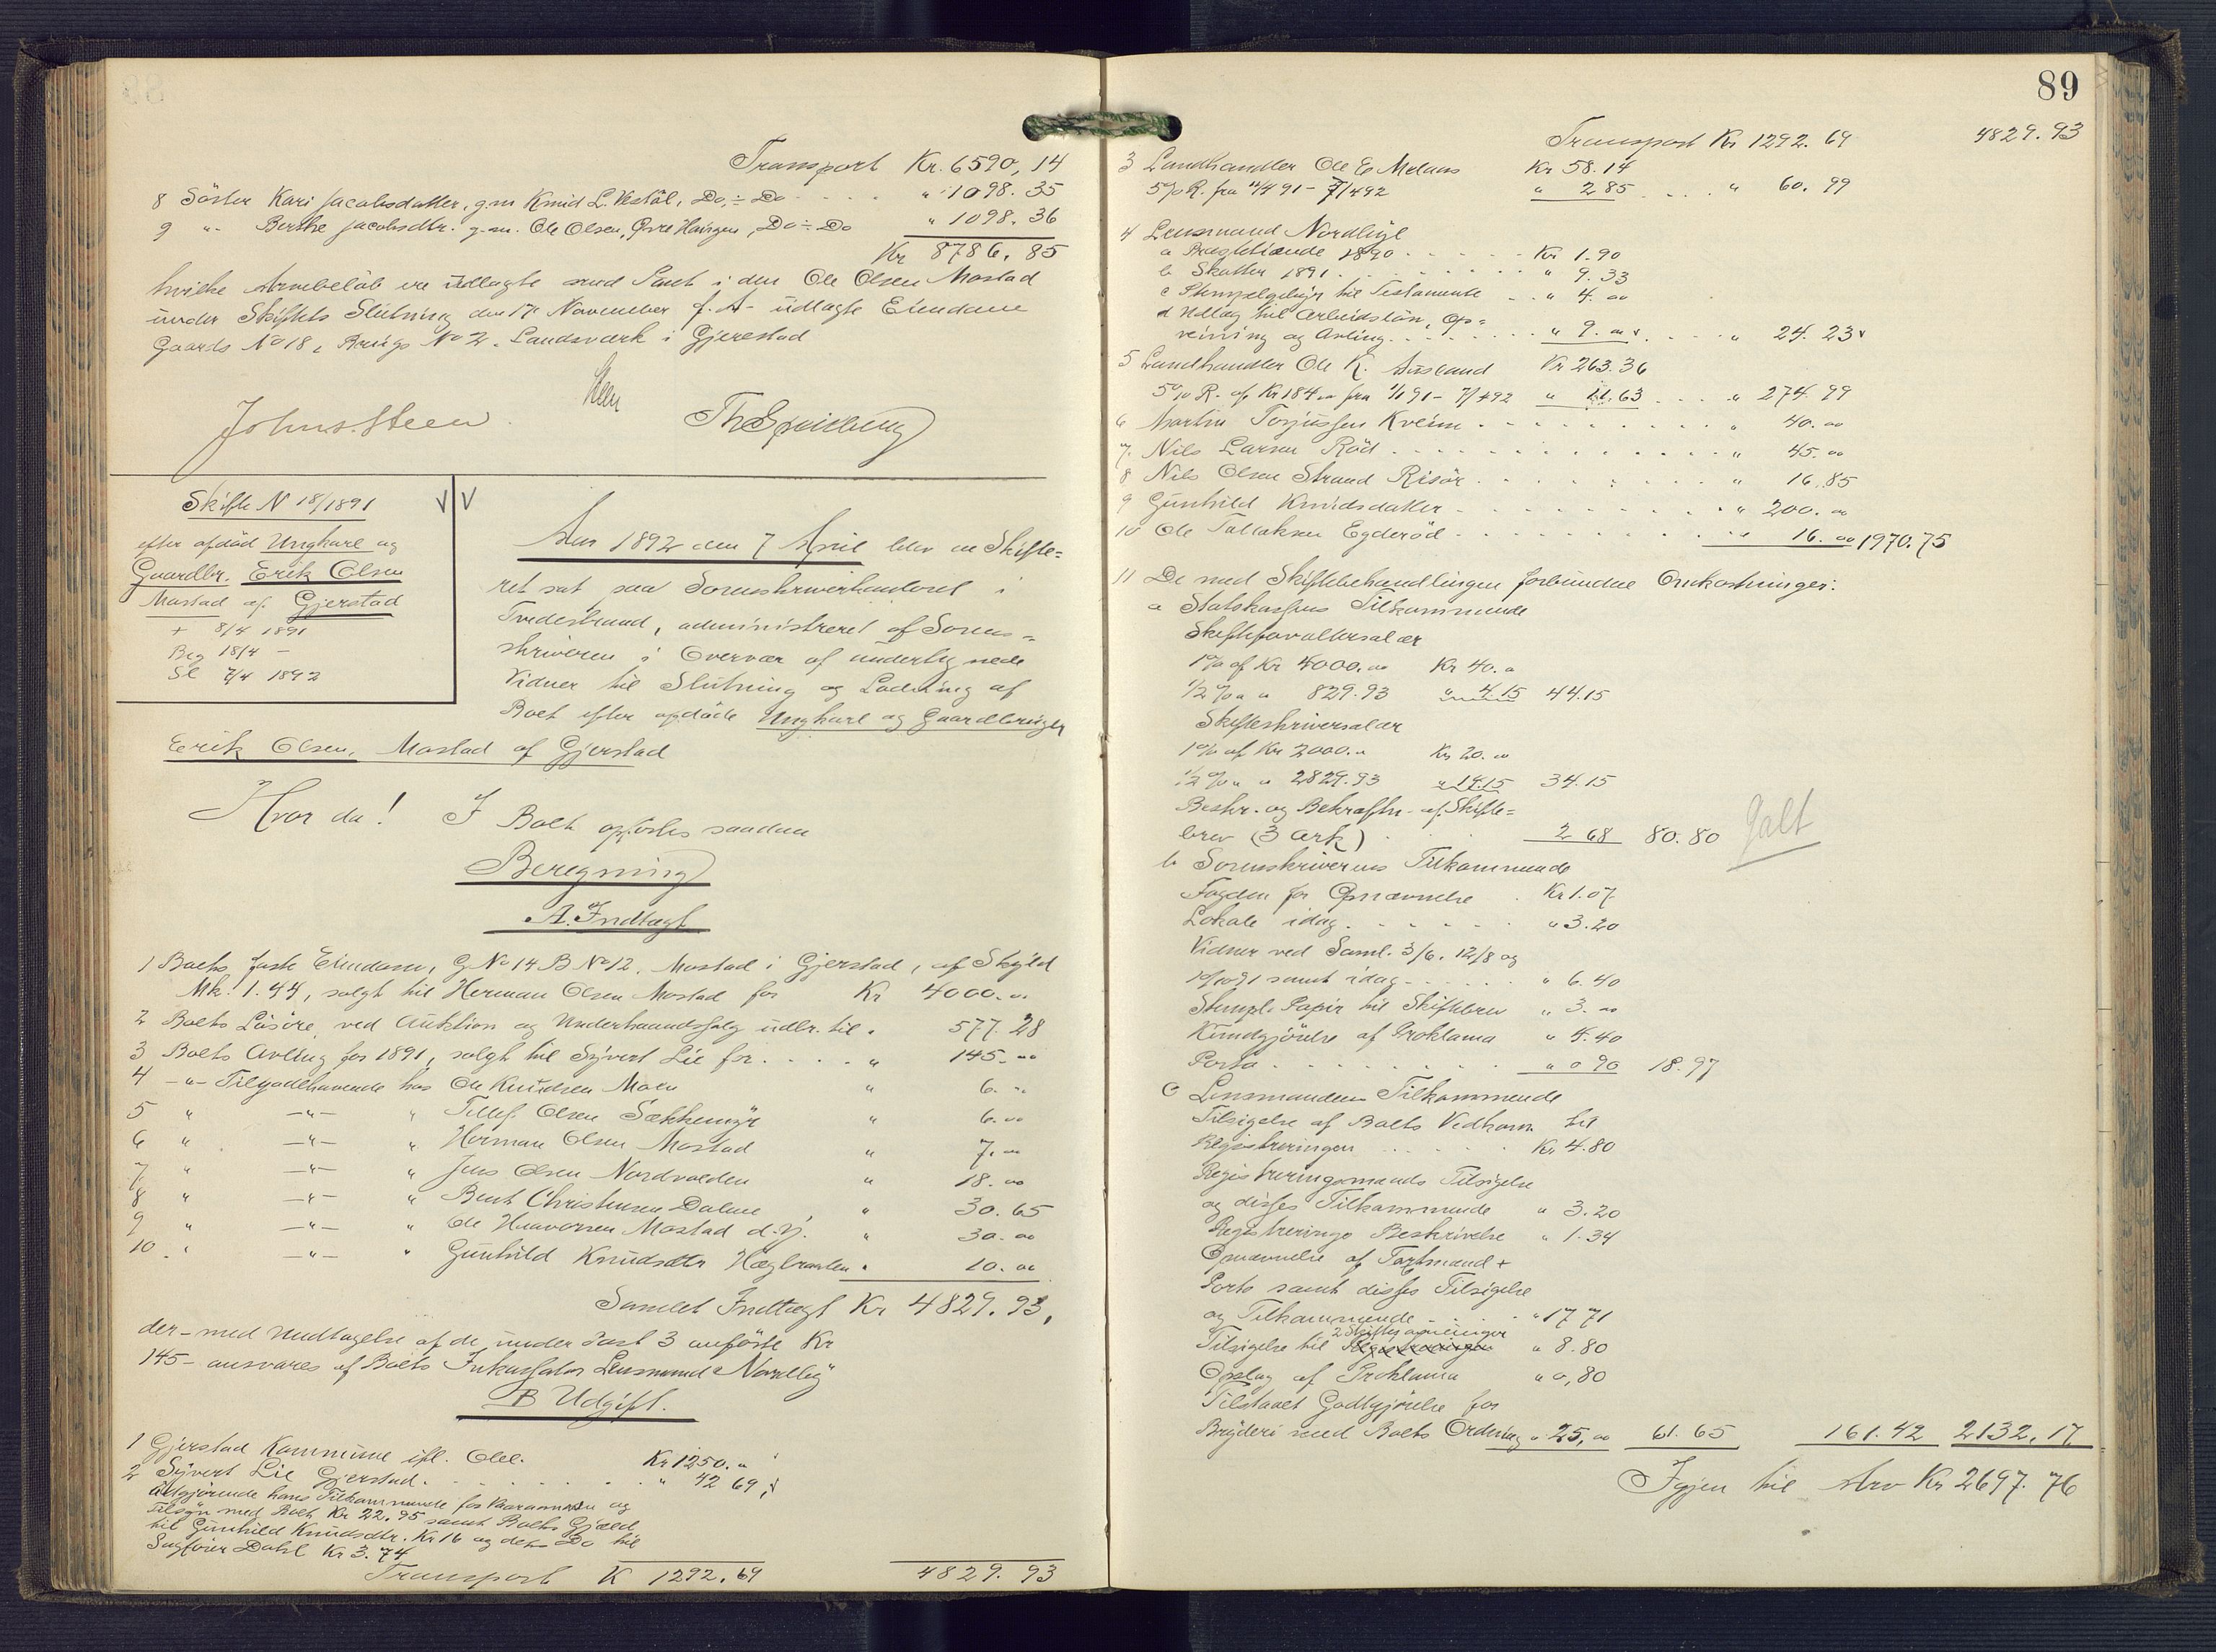 Transport Kr. 6590,14
8 Söster Kari Jacobsdatter, g.m. Knud L. Vestöl, Do ÷ Do " 1098.35
9 " Berthe Jacobsdtr. g.m. Ole Olsen, Övre Haugen, Do ÷ Do " 1098.36
Kr 8786.85
hvilke Arvebeløb ere udlagte med Pant i den Ole Olsen Mostad
under Skiftets Slutning den 17 November f. A. udlagte Eiendom
Gaards No 18, Brugs No 2. Landsverk i Gjerestad
Johns. Steen
Skifte N 18/1891
efter afdöd Ungkarl og
Gaardbr. Erik Olsen
Mostad af Gjerstad
+ 8/4 1891
Beg 18/4 -
Sl 7/4 1892
Aar 1892 den 7 April blev en Skifte=
ret sat paa Sorenskriverkontoret i
Tvedestrand, administreret af Sorens=
skriveren i Overvær af undertegnede
Vidner til Slutning og Lodning af
Boet efter afdöde Ungkarl og Gaardbruger
Erik Olsen, Mostad af Gjerstad
Hvor da! I Boet opförtes saadan
Beregning
A. Indtægt
1 Boets faste Eiendom, G No 14 B No 12. Mostad i Gjerstad, af Skyld
Mk. 1.44, solgt til Herman Olsen Mostad for Kr 4000.00
2 Boets Lösöre, ved Auktion og Underhaandssalg udbr. til " 577.28
3 Boets Avling for 1891, solgt til Syvert Lie for " 145.00
4 -"- Tilgodehavende hos Ole Knudsen Moen " 6.00
5 " -"- " Tellef Olsen Sækkemyr " 6.00
6 " -"- " Herman Olsen Mostad " 7.00
7 " -"- " Jens Olsen Nordvolden " 18.00
8 " -"- " Bent Christensen Dalene " 30.65
9 " -"- " Ole Halvorsen Mostad d.y. " 30.00
10 " -"- " Gunhild Knudsdtr Hægbraaten " 10.00
Samlet Indtægt Kr 4829.93,
der - med Undtagelse af de under Post 3 anförte Kr
145 - ansvares af Boets Inkassator Lensmand Nordbö
B Udgift.
1 Gjerstad Kommune ifl. Obl. Kr 1250.00
2 Syvert Lie Gjerstad " 42 69,
udgjörende hans Tilkommende for Varamaen og
Tilsyn med Boet Kr 22.95 samt Boets Gjæld
til Gunhild Knudsdtr. Kr 16 og dets Do til
Sagförer Dahl Kr 3.74
Transport K 1292.69 4829.93
89
Transport Kr 1292.69 4829.93
3 Landhandler Ole E Melaas Kr 58.14
5% R. fra 11/4 91 - 7/4 92 " 2 85 " 60.99
4 Lensmand Nordbö
a Prestetiende 1890 Kr 1.90
b Skatter 1891 " 9.33
c Stempelgebyr til Testamente " 4.00
d Udlæg til Arbeidslön, Op=
reining og Avling " 9.00 " 24.23
5 Landhandler Ole K. Ausland Kr 263.36
5% R. af Kr 184.00 fra 1/1 91 - 7/4 92 " 11.63 " 274.99
6 Martin Torjussen Kveim " 40.00
7. Nils Larsen Röd " 45.00
8 Nils Olsen Strand Risör " 16.85
9 Gunhild Knudsdatter " 200.00
10 Ole Tallaksen Egderöd " 16.00 1970.75
11 De med Skiftebehandlingen forbundne Omkostninger:
a Statskassens Tilkommende
Skifteforvaltersalær
1% af Kr 4000.00 Kr 40.00
1/2 % " " 829.93 " 4.15 44.15
Skifteskriversalær
1% af Kr 2000.00 Kr 20.00
1/2 % " " 2829.93 " 14.15 34.15
Beskr. og Bekræftn. af Skifte=
brev (3 Ark) 2 68 80.80 galt
b Sorenskriverens Tilkommende
Fogden for Opnævnelse Kr 1.07
Lokale idag " 3.20
Vidner ved Saml. 3/6. 12/8 og
10/10 91 samt idag " 6.40
Stempl. Papir til Skiftebrev " 3.00
Kundgjörelse af Proklama " 4.40
Porto " 0 90 18.97
c Lensmanden Tilkommende
Tilsigelse af Boets Vedkom. til
Registreringen Kr 4.80
Registreringsmænds Tilsigelse
og disses Tilkommende " 3.20
Registrerings Beskrivelse " 1.34
Opnævnelse af Taxtmænd +
Porto samt disses Tilsigelse
og Tilkommende " 17 71
2 Skiftesamlinger
Tilsigelse til Registreringen " 8.80
Opslag af Proklama " 0,80
Tilstaaet Godtgjörelse for
Bryderi med Boets Ordning " 25,00 61.65 161.42 2132.17
Igjen til Arv Kr 2697.76